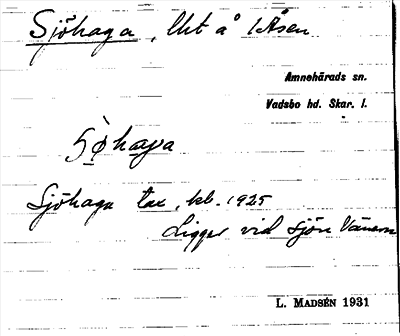 Sjöhaga, lht å 1 Åsen
Amnehärads sn.
Vadsbo hd. Skar. l.
Sjöhaga tax. kb. 1925
Ligger vid sjön Vänern
L. MADSÉN 1931